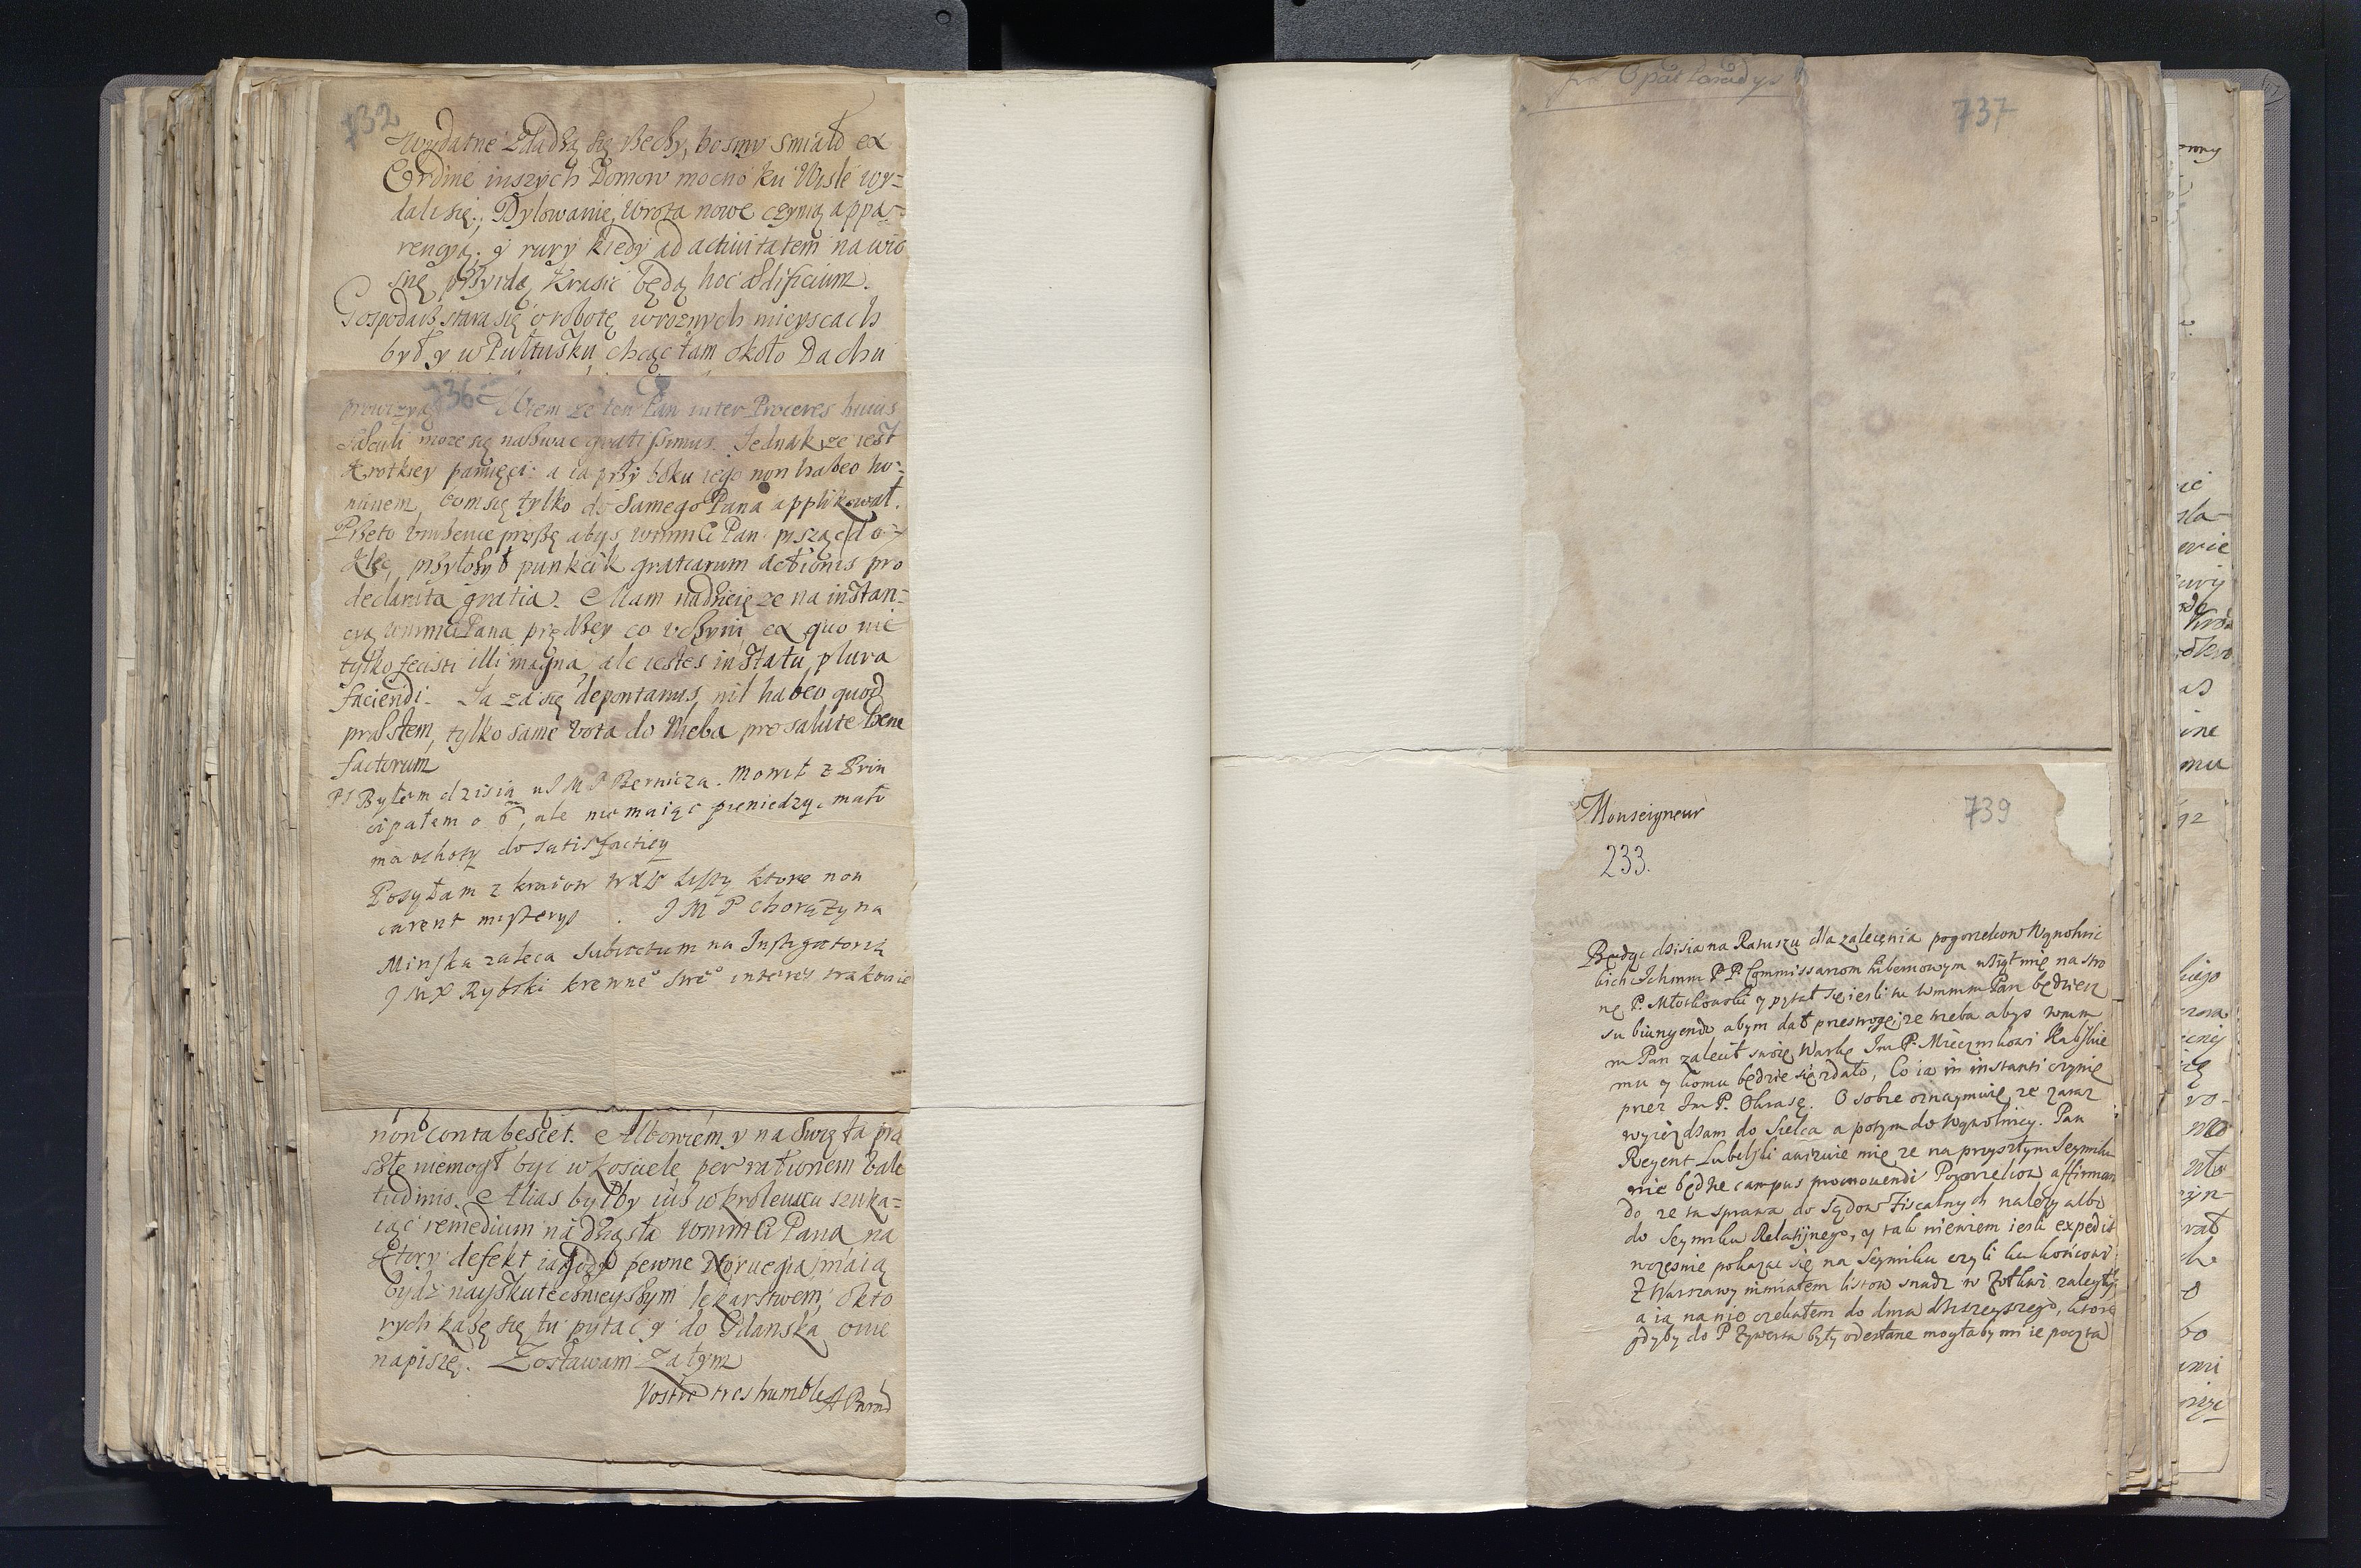 732
Wydatne zdadzą się rzeczy, bosmy smiało ex
Ordine inszych Domow mocno ku Wisle wy=
dali się. Dylowanie, Wrota nowe czynią appa=
rengyą. y rury kiedy ad activitatem na wio
snę przyidą krasić będą hoc ædificium.
Gospodarz stara się o robotę w roznych mieyscach
był y w Pułtusku chcąc tam około Dachu
736
Wiem ze ten Pan inter Proceres huius
sæculi moze się nazwac gratissimus. Jednak ze iest
krotkiey pamięci: a ia przy boku iego non habeo ho=
minem, bom się tylko do Samego Pana applikował.
Przeto vnizenie proszę abys WmmCi Pan pisząc do X
przyłozył punkcik gratiarum actionis pro
declarata gratia. Mam nadzieię ze na instan=
cyą WmmCi Pana prędzey co vczyni, ex quo nie
tylko fecisti illi magna, ale iestes in statu plura
faciendi. Ja za się depontanus, nil habeo quod
præstem, tylko same vota do Nieba pro salute bene
factorum
PS Byłem dzisia u J M P Bernicza. Mowił z Prin
cipałem o, ale nie maiąc pieniedzy, mało
ma ochoty do satisfactiey
Posyłam z kraiow WXL Listy ktore non
carent misterys. J M P Chorązyna
Minska zaleca Subiectum na Instigatorią
J M X Rybski krewne swe interes trakowie
non contabesciet. Albowiem y na Swięta prze
szłe niemogł byc w kosciele per rationem vale
tudinis. Alias byłby iuz w krolewcu szuka=
iąc remedium na dziąsła WmmCi Pana na
ktory defekt iagody pewne Norvegia maią
bydz nayskutecznieyszym lekarstwem, o kto
rych kazę się tu pytac y do Gdanska o nie
napiszę. Zostawam zatym
Vostre tres humble
737
Monseigneur
739
233.
Będąc dzisia na Ratuszu dla zalecenia pogorzelcow Wąwolnic
kich Ichmm P P Commissarzom Hibernowym wziął mię na stro
nę P. Młochowski y pytał się iesli tu Wmmm Pan będziesz
subiungendo abym dał przestrogę, ze trzeba abys Wmm
m Pan zalecił swoię Warkę Im P. Miecznikowi Kaliskie
mu y komu będzie się zdało, Co ia in instanti czynię
przez Im P. Okrasę. O sobie oznaymuię ze zaraz
wyiezdzam do Sielca a potym do Wąwolnicy. Pan
Regent Lubelski awizuie mię ze na przyszłym Seymiku
nie będzie campus promovendi Pogorzelcow affirman
do ze ta sprawa do Sądow Fiscalnych nalezy albo
do Seymiku Relatijnego, y tak niewiem iesli expedit
wczesnie pokazac się na Seymiku czyli ku końcowi
Z Warszawy niemiałem listow snadz w Zołkwi zaległy
a ia na nie czekałem do dnia dziszeyszego, ktore
gdyby do P Zywerta były odesłane mogłaby mi ie poczta